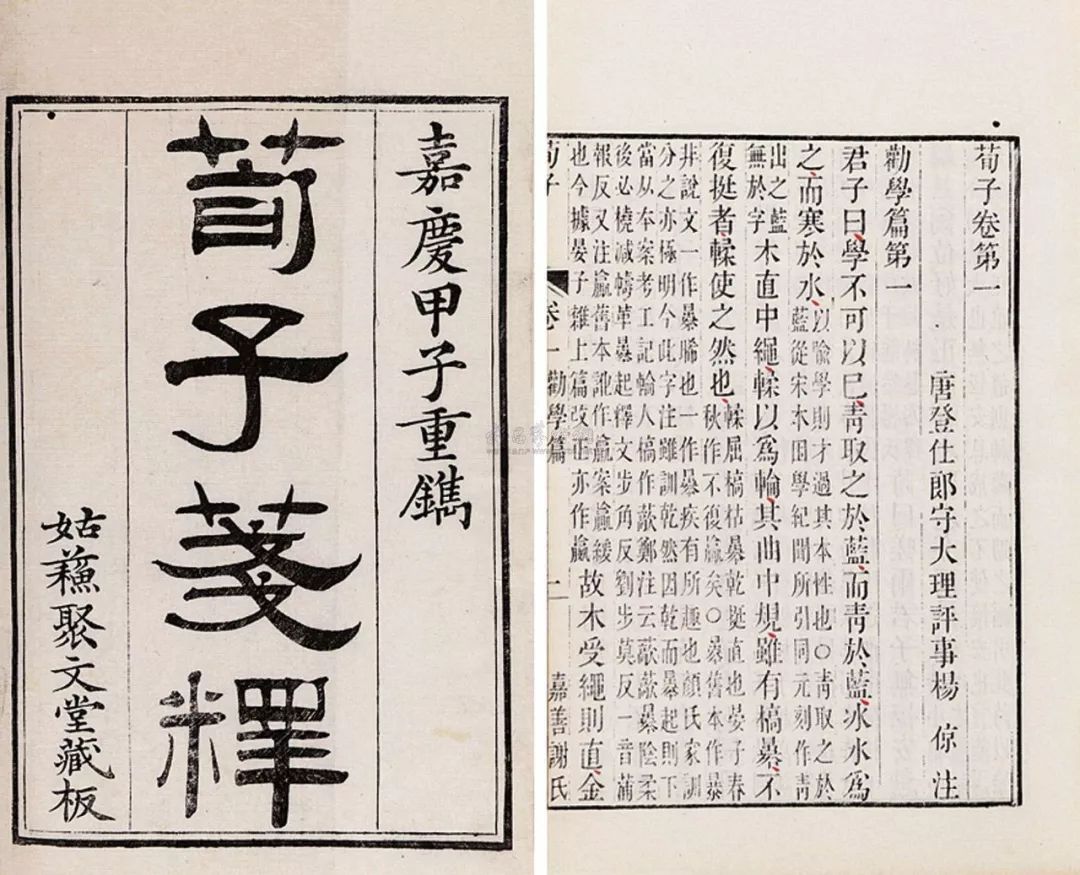 嘉慶甲子重鐫
荀子箋釋
姑蘓聚文堂藏板
荀子卷第一
唐登仕郎守大理評事楊 倞 注
勸學篇第一
君子曰學不可以已青取之於藍而青於藍冰水爲
之而寒於水以喻學則才過其本性也○青取之於藍從宋本困學紀聞所引同元刻作青
出之藍無於字木直中繩輮以爲輪其曲中規雖有槁暴不
復挺者輮使之然也輮屈槁枯暴乾挺直也晏子春秋作不復贏矣○暴舊本作暴
非說文一作暴晞也一作暴疾有所趣也顏氏家訓
分之亦極明今此字注雖訓乾然因乾而暴起則下
當從本案考工記輪人槁作藃鄭注云藃藃暴陰柔
後必橈減幬革暴起釋文步角反劉步莫反一音蒲
報反又注贏舊本訛作嬴案贏緩也今據晏子雜上篇改正亦作嬴故木受繩則直金
荀子 卷一 勸學篇 一 嘉善謝氏